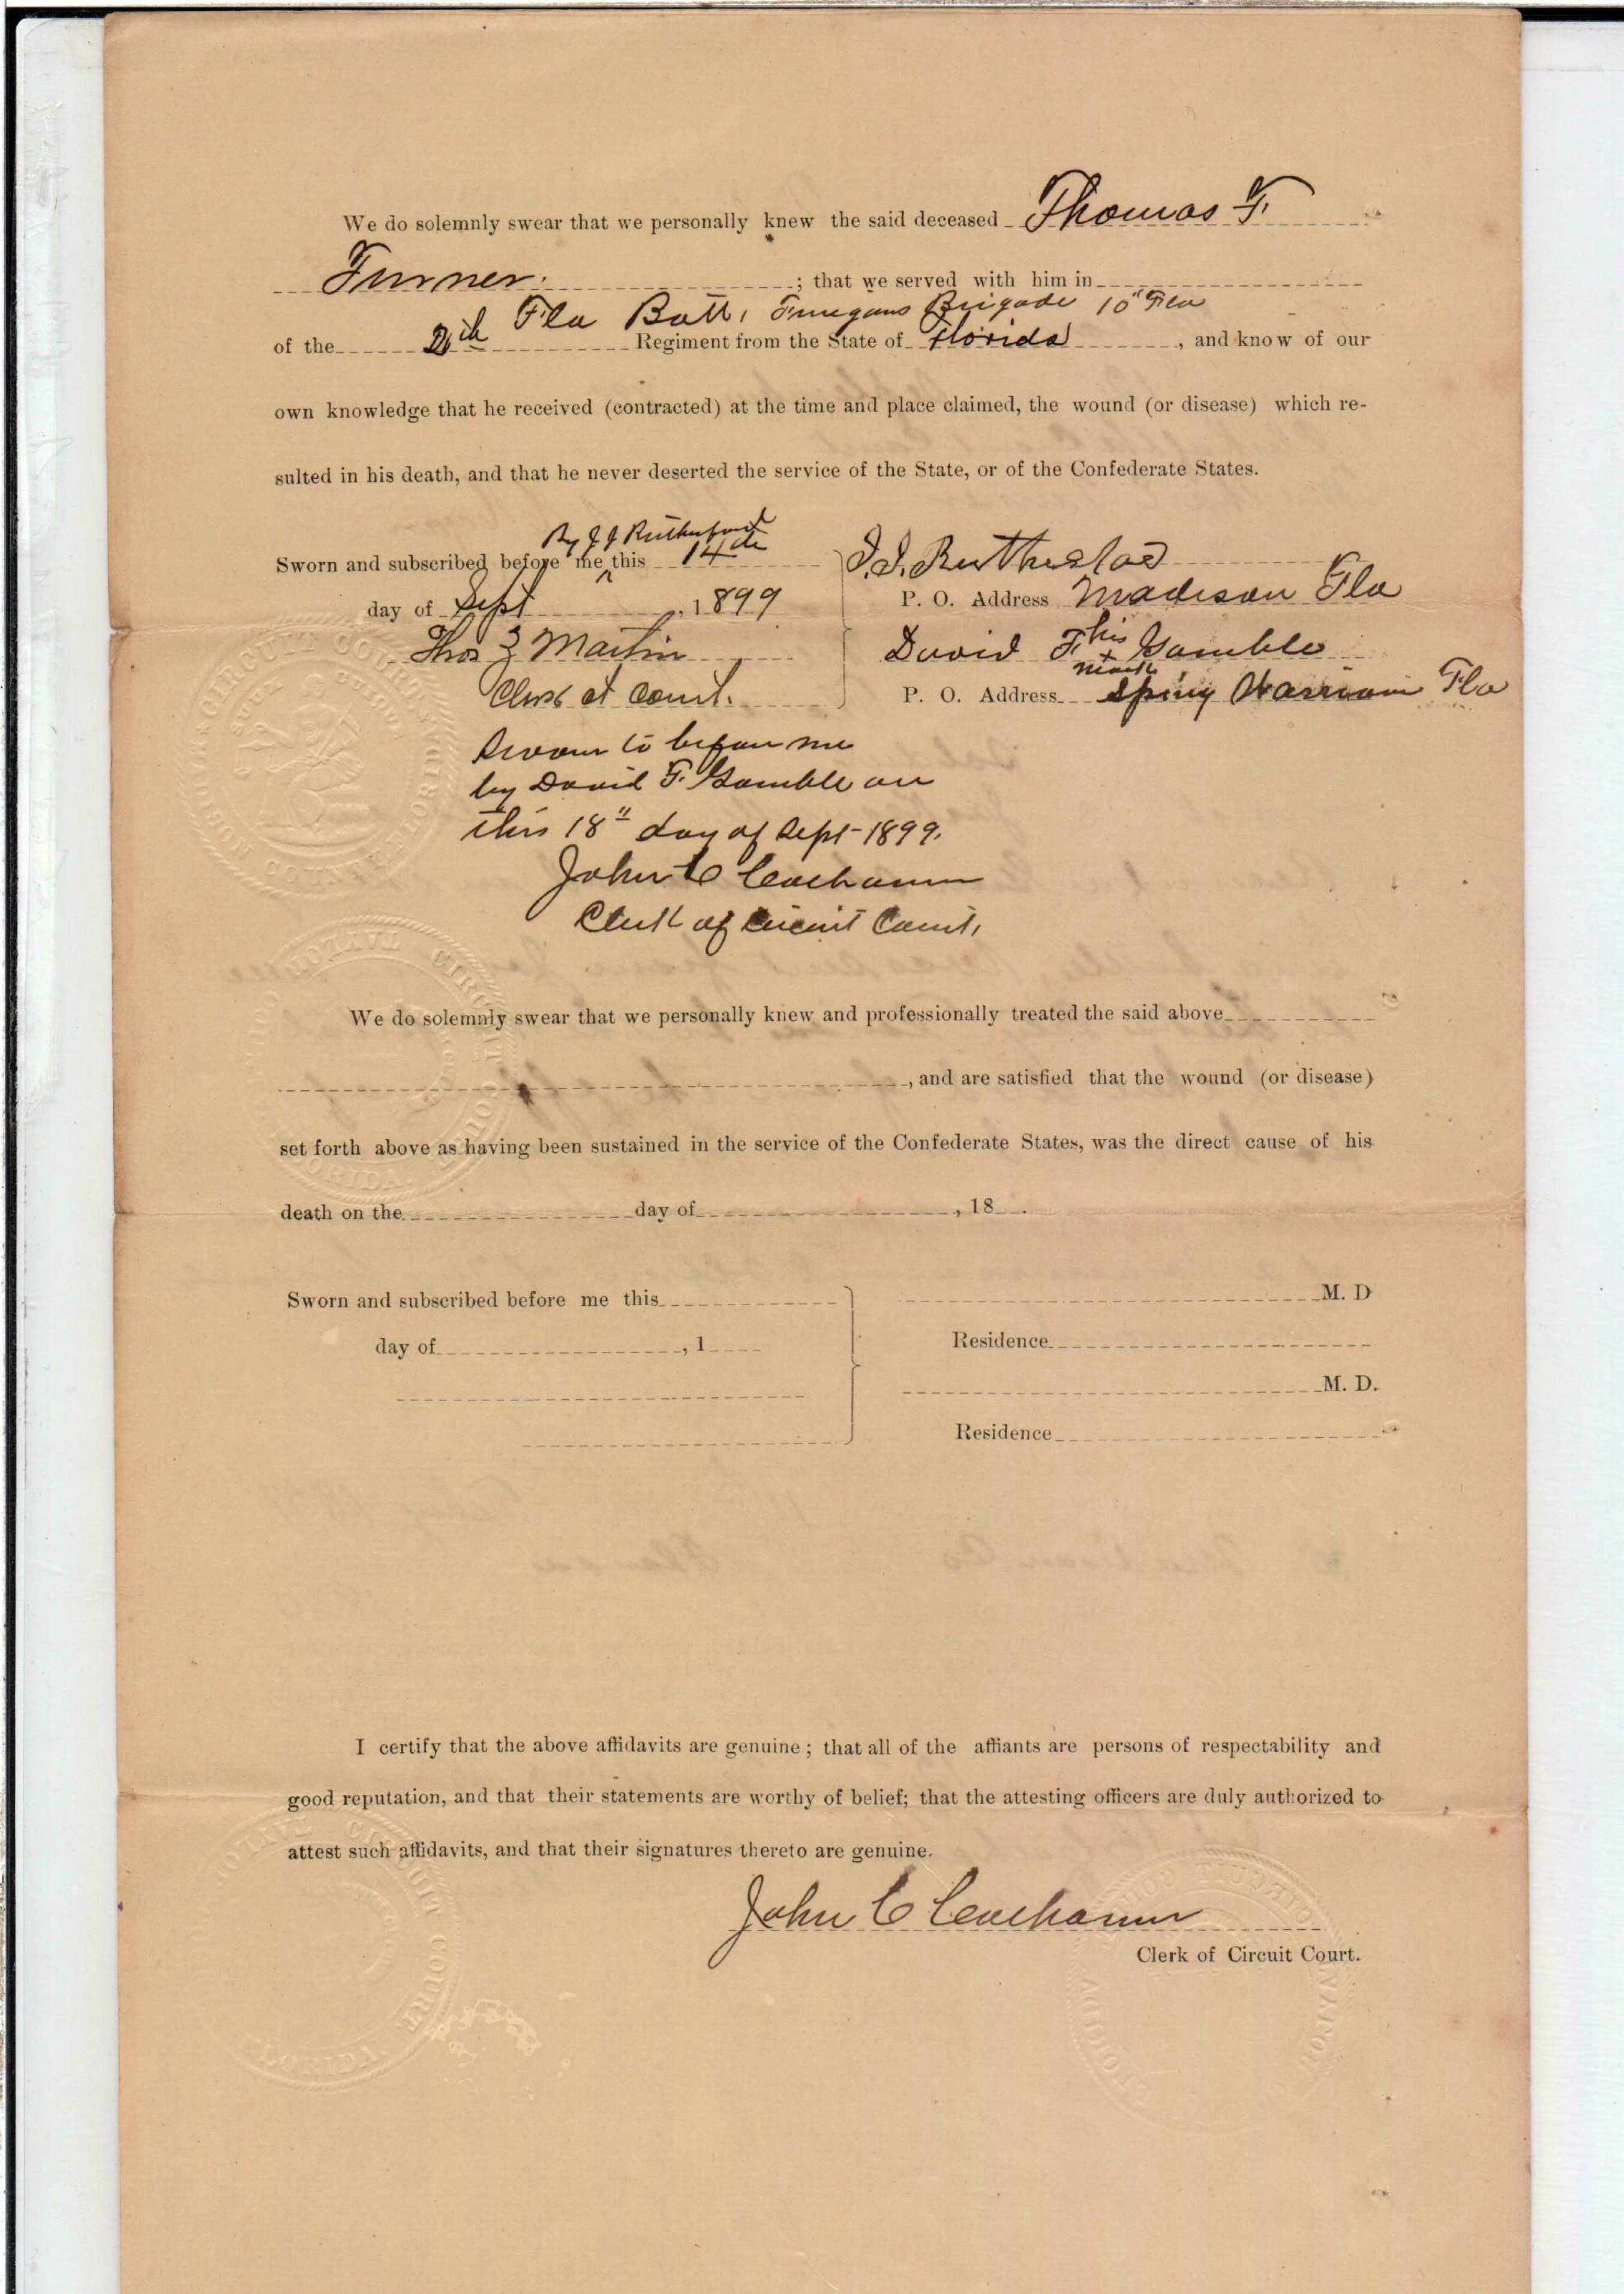 We do solemnly swear that we personally knew the said deceased Thomas F.
Turner. ; that we served with him in
Fla Batt, Finegans Brigade 10th Fla
of the Regiment from the State of Florida , and know of our
own knowledge that he received (contracted) at the time and place claimed, the wound (or disease) which re-
sulted in his death, and that he never deserted the service of the State, or of the Confederate States.
By J J Rutherford
Sworn and subscribed before me ^ this 14th
day of Sept , 1899
Thos Martin
Clerk Ct Court.
J. J. Rutherford
P. O. Address Madison Fla
David F. his x mark Gamble
P. O. Address Spring Warrior Fla
Sworn to before me
by David F. Gamble on
this 18" day of Sept-1899.
John C
Clerk of Circuit Court,
We do solemnly swear that we personally knew and professionally treated the said above
, and are satisfied that the wound (or disease)
set forth above as having been sustained in the service of the Confederate States, was the direct cause of his
death on the day of , 18 .
Sworn and subscribed before me this
day of , 1
M. D
Residence
M. D.
Residence
I certify that the above affidavits are genuine ; that all of the affiants are persons of respectability and
good reputation, and that their statements are worthy of belief; that the attesting officers are duly authorized to
attest such affidavits, and that their signatures thereto are genuine.
John C
Clerk of Circuit Court.